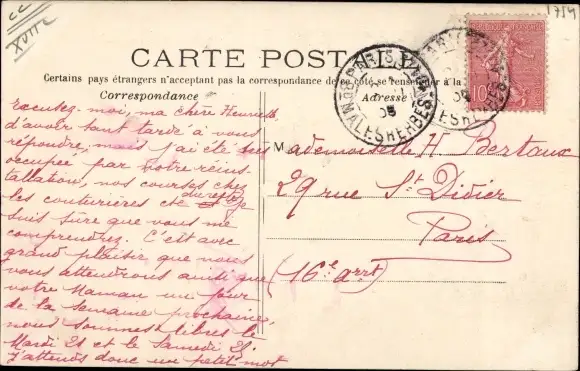 CC
XVIIe
1754
CARTE POSTALE
Certains pays étrangers n'acceptant pas la correspondance de ce côté se renseigner à la
Correspondance
Adresse
PARIS
Bd MALESHERBES
05
10
Excusez-moi, ma chère Henriette
d'avoir tant tardé à vous
répondre, mais j'ai été très
occupée par notre réins-
tallation, nos courses chez
les couturières etc
du reste je
suis sûre que vous me
comprendrez. C'est avec
grand plaisir que nous
vous attendrons ainsi que
votre Maman un jour
de la semaine prochaine,
nous sommes libres le
Mardi 21 et le Samedi 25.
J'attends donc un petit mot
Mademoiselle H. Bertaux
29 rue St Didier
Paris
(16e arrt)